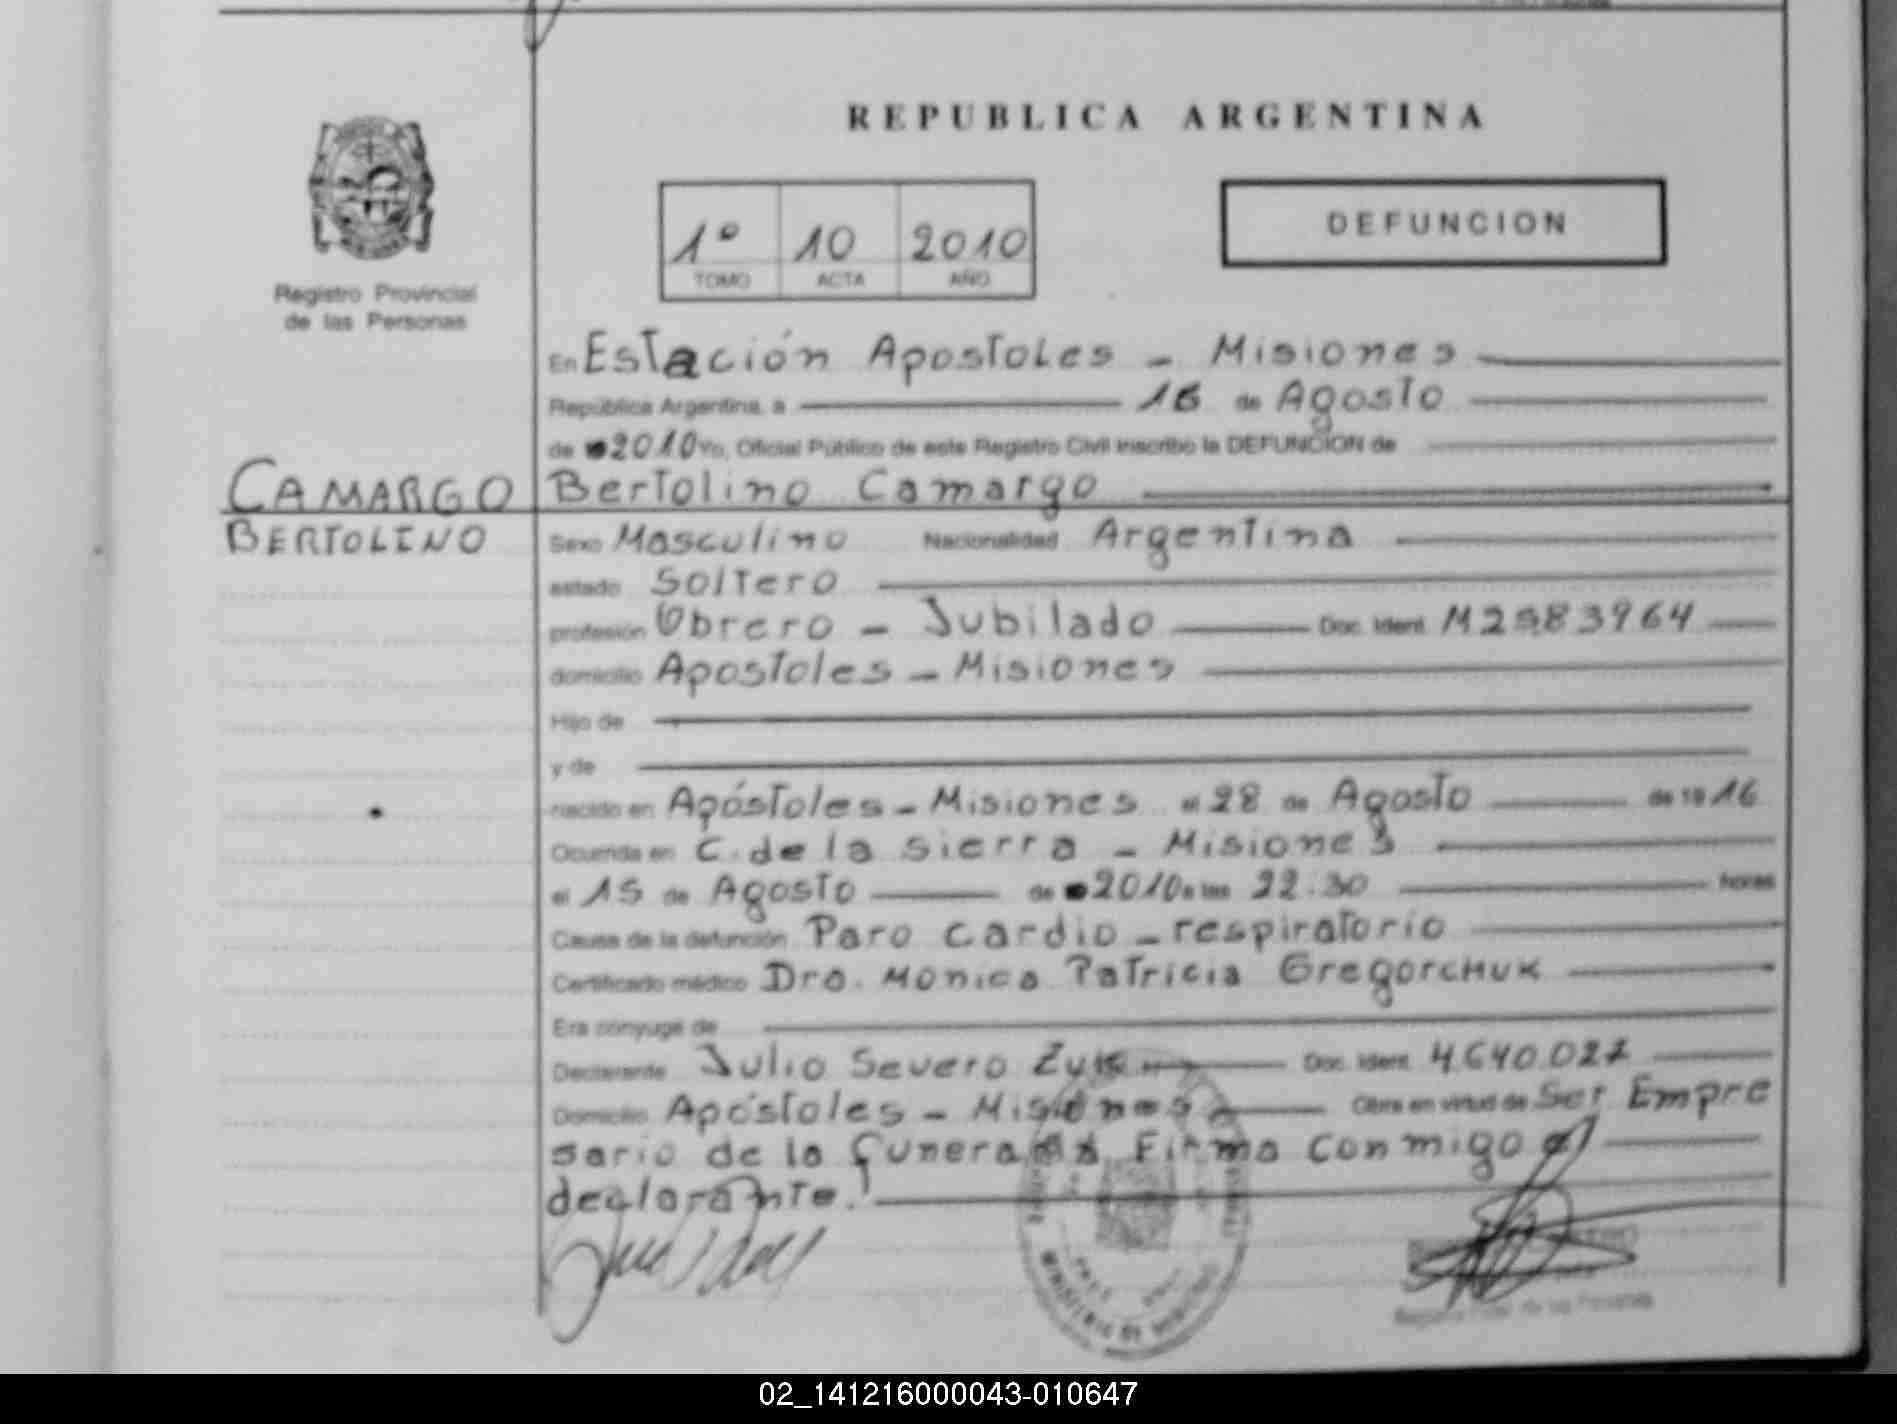 REPUBLICA ARGENTINA
1º 10 2010
TOMO ACTA AÑO
DEFUNCION
Registro Provincial
de las Personas
En Estación Apostoles - Misiones
República Argentina, a 16 de Agosto
de 2010 Yo, Oficial Público de este Registro Civil inscribo la DEFUNCION de
CAMARGO Bertolino Camargo
BERTOLINO Sexo Masculino Nacionalidad Argentina
estado Soltero
profesión Obrero - Jubilado Doc. Ident. M2583964
domicilio Apostoles - Misiones
Hijo de
y de
nacido en Apóstoles - Misiones el 28 de Agosto de 19 16
Ocurrida en C. de la sierra - Misiones
el 15 de Agosto de 2010 a las 22:30 horas
Causa de la defunción Paro cardio - respiratorio
Certificado médico Dra. Monica Patricia Gregorchuk
Era cónyuge de
Declarante Julio Severo Doc. Ident. 4.640.027
Domicilio Apóstoles - Misiones Obra en virtud de Ser Empre
sario de la Firma conmigo el
declarante.
MINISTERIO DE
02_141216000043-010647